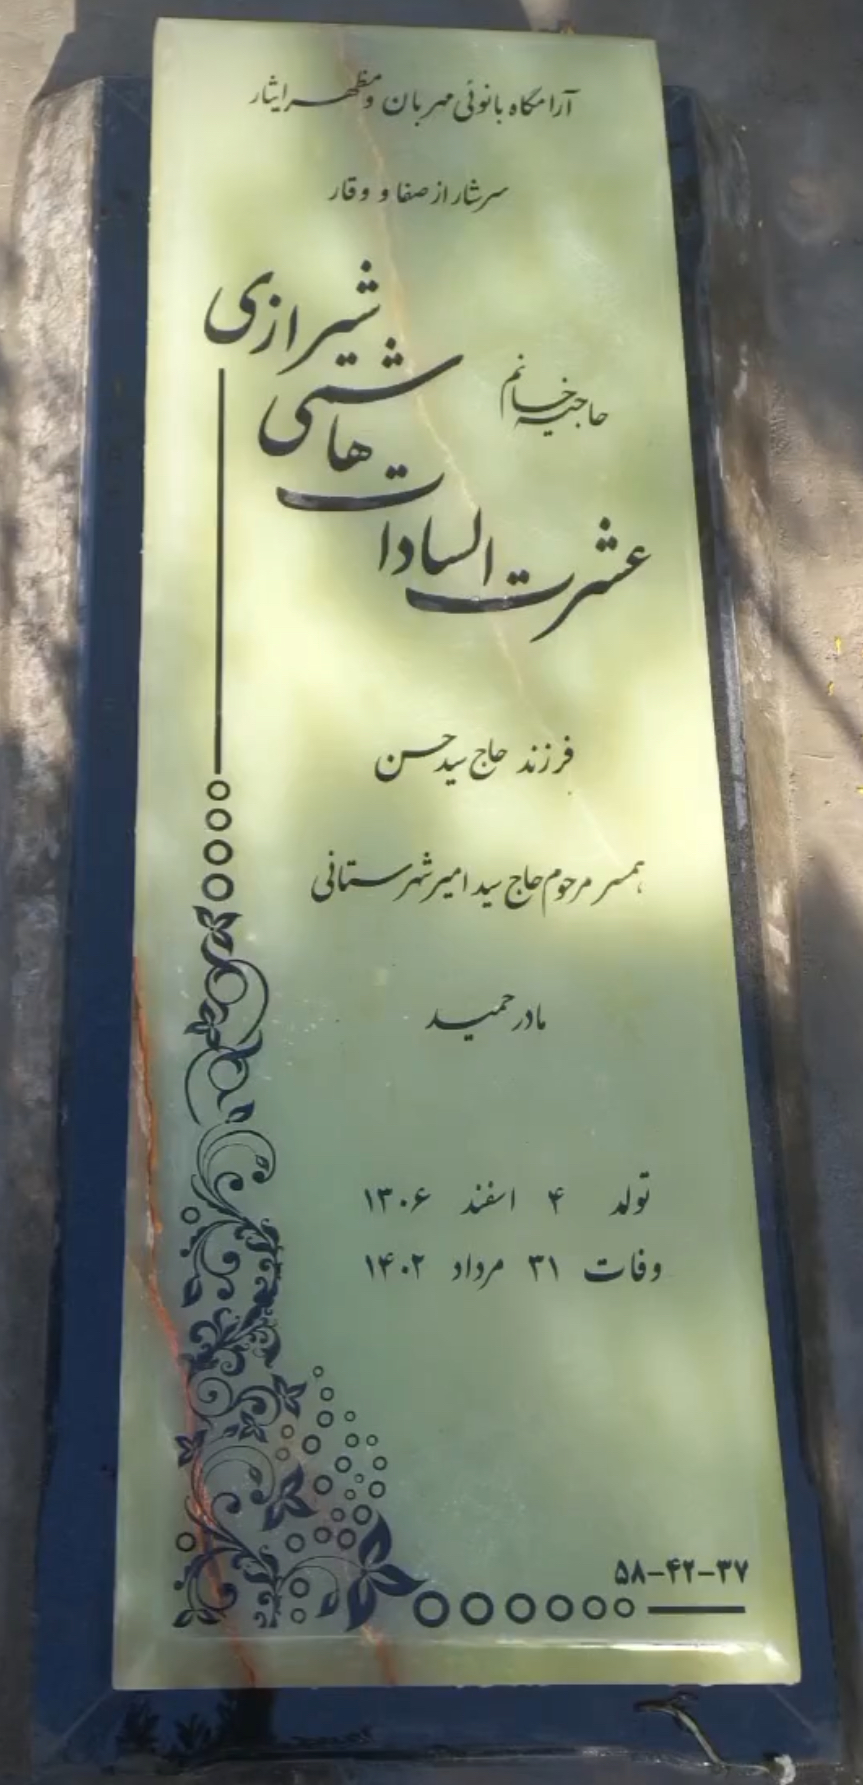 آرامگاه بانوئی مهربان و مظهر ایثار
سرشار از صفا و وقار
حاجیه خانم
عشرت السادات
هاشمی
شیرازی
فرزند حاج سید حسن
همسر مرحوم حاج سید امیر شهرستانی
مادر حمید
تولد ۴ اسفند ۱۳۰۶
وفات ۳۱ مرداد ۱۴۰۲
۵۸-۴۲-۳۷